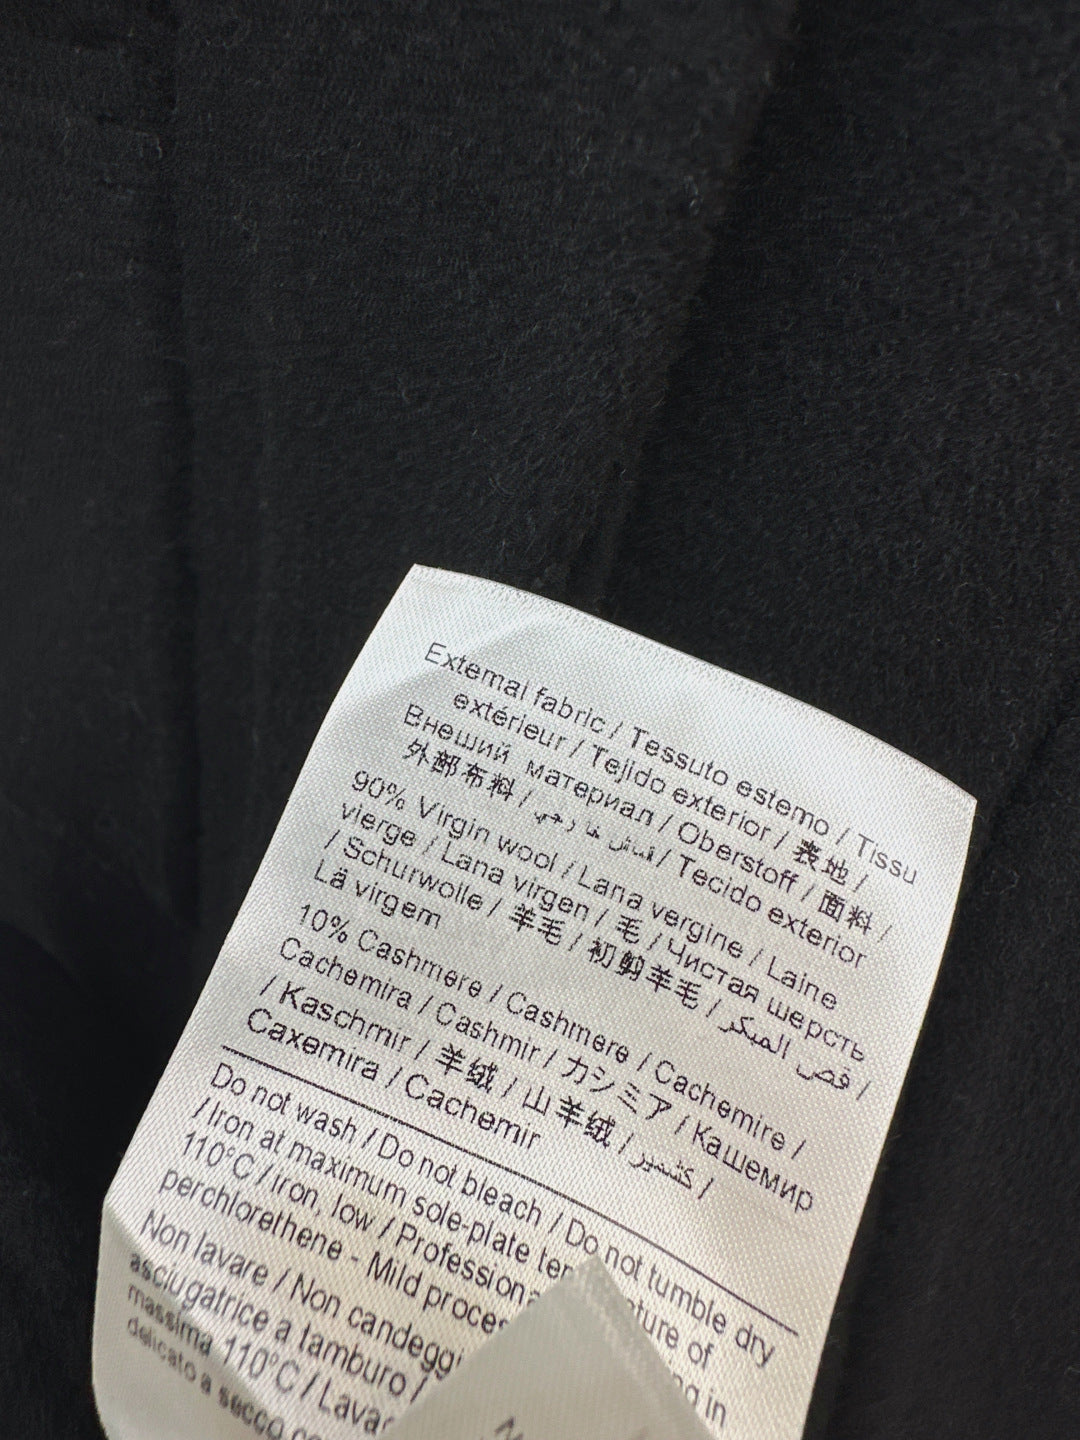 External fabric / Tessuto esterno / Tissu
extérieur / Tejido exterior / 表地 /
Внешний материал / Oberstoff / 面料 /
外部布料 / / Tecido exterior
90% Virgin wool / Lana vergine / Laine
vierge / Lana virgen / 毛 / Чистая шерсть
/ Schurwolle / 羊毛 / 初剪羊毛 / قص المبكر /
Lã virgem
10% Cashmere / Cashmere / Cachemire /
Cachemira / Cashmir / カシミア / Кашемир
/ Kaschmir / 羊绒 / 山羊绒 / كشمير /
Caxemira / Cachemir
Do not wash / Do not bleach / Do not tumble dry
/ Iron at maximum sole-plate ture of
110°C / iron, low / in
perchlorethene - Mild
Non lavare / Non
asciugatrice a tamburo /
massima 110°C /
delicato a secco